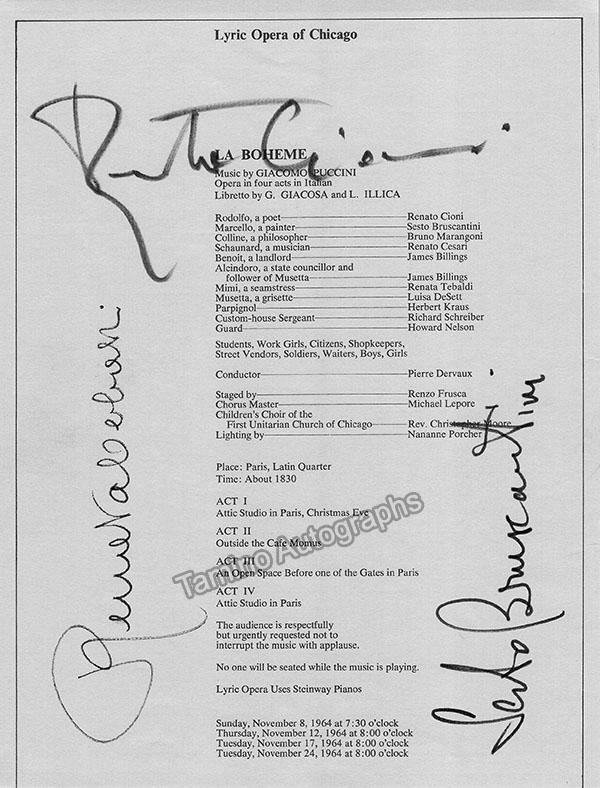 Lyric Opera of Chicago
Renato Cioni
LA BOHEME
Music by GIACOMO PUCCINI
Opera in four acts in Italian
Libretto by G. GIACOSA and L. ILLICA
Rodolfo, a poet—Renato Cioni
Marcello, a painter—Sesto Bruscantini
Colline, a philosopher—Bruno Marangoni
Schaunard, a musician—Renato Cesari
Benoit, a landlord—James Billings
Alcindoro, a state councillor and
follower of Musetta—James Billings
Mimi, a seamstress—Renata Tebaldi
Musetta, a grisette—Luisa DeSett
Parpignol—Herbert Kraus
Custom-house Sergeant—Richard Schreiber
Guard—Howard Nelson
Students, Work Girls, Citizens, Shopkeepers,
Street Vendors, Soldiers, Waiters, Boys, Girls
Conductor—Pierre Dervaux
Staged by—Renzo Frusca
Chorus Master—Michael Lepore
Children's Choir of the
First Unitarian Church of Chicago—Rev. Christopher Moore
Lighting by—Nananne Porcher
Renata Tebaldi
Sesto Bruscantini
Place: Paris, Latin Quarter
Time: About 1830
ACT I
Attic Studio in Paris, Christmas Eve
ACT II
Outside the Cafe Momus
ACT III
An Open Space Before one of the Gates in Paris
ACT IV
Attic Studio in Paris
Tamino Autographs
The audience is respectfully
but urgently requested not to
interrupt the music with applause.
No one will be seated while the music is playing.
Lyric Opera Uses Steinway Pianos
Sunday, November 8, 1964 at 7:30 o'clock
Thursday, November 12, 1964 at 8:00 o'clock
Tuesday, November 17, 1964 at 8:00 o'clock
Tuesday, November 24, 1964 at 8:00 o'clock